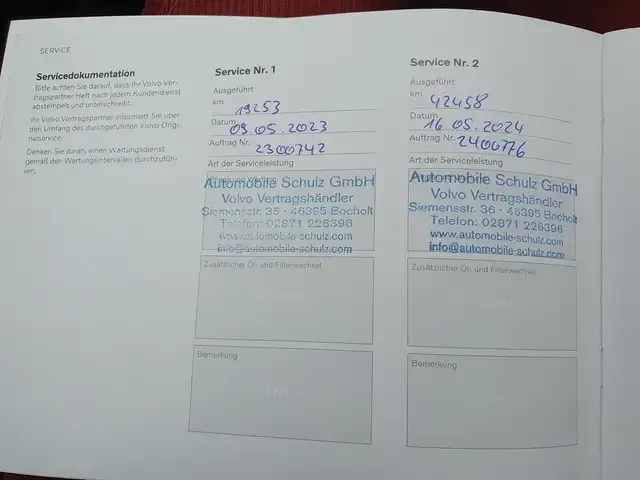 SERVICE
Servicedokumentation
Bitte achten Sie darauf, dass Ihr Volvo Ver-
tragspartner Heft nach jedem Kundendienst
abstempelt und unterschreibt.
Ihr Volvo Vertragspartner informiert Sie über
den Umfang des durchgeführten Volvo Origi-
nalservice.
Denken Sie daran, einen Wartungsdienst
gemäß den Wartungsintervallen durchzufüh-
ren.
Service Nr. 1
Ausgeführt
km 19253
Datum 09.05.2023
Auftrag Nr. 2300742
Art der Serviceleistung
Automobile Schulz GmbH
Volvo Vertragshändler
Siemensstr. 36 - 46395 Bocholt
Telefon: 02871 226396
www.automobile-schulz.com
info@automobile-schulz.com
Zusätzlicher Öl- und Filterwechsel
Bemerkung
Service Nr. 2
Ausgeführt
km 42458
Datum 16.05.2024
Auftrag Nr. 2400776
Art der Serviceleistung
Automobile Schulz GmbH
Volvo Vertragshändler
Siemensstr. 36 - 46395 Bocholt
Telefon: 02871 226396
www.automobile-schulz.com
info@automobile-schulz.com
Zusätzlicher Öl- und Filterwechsel
Bemerkung